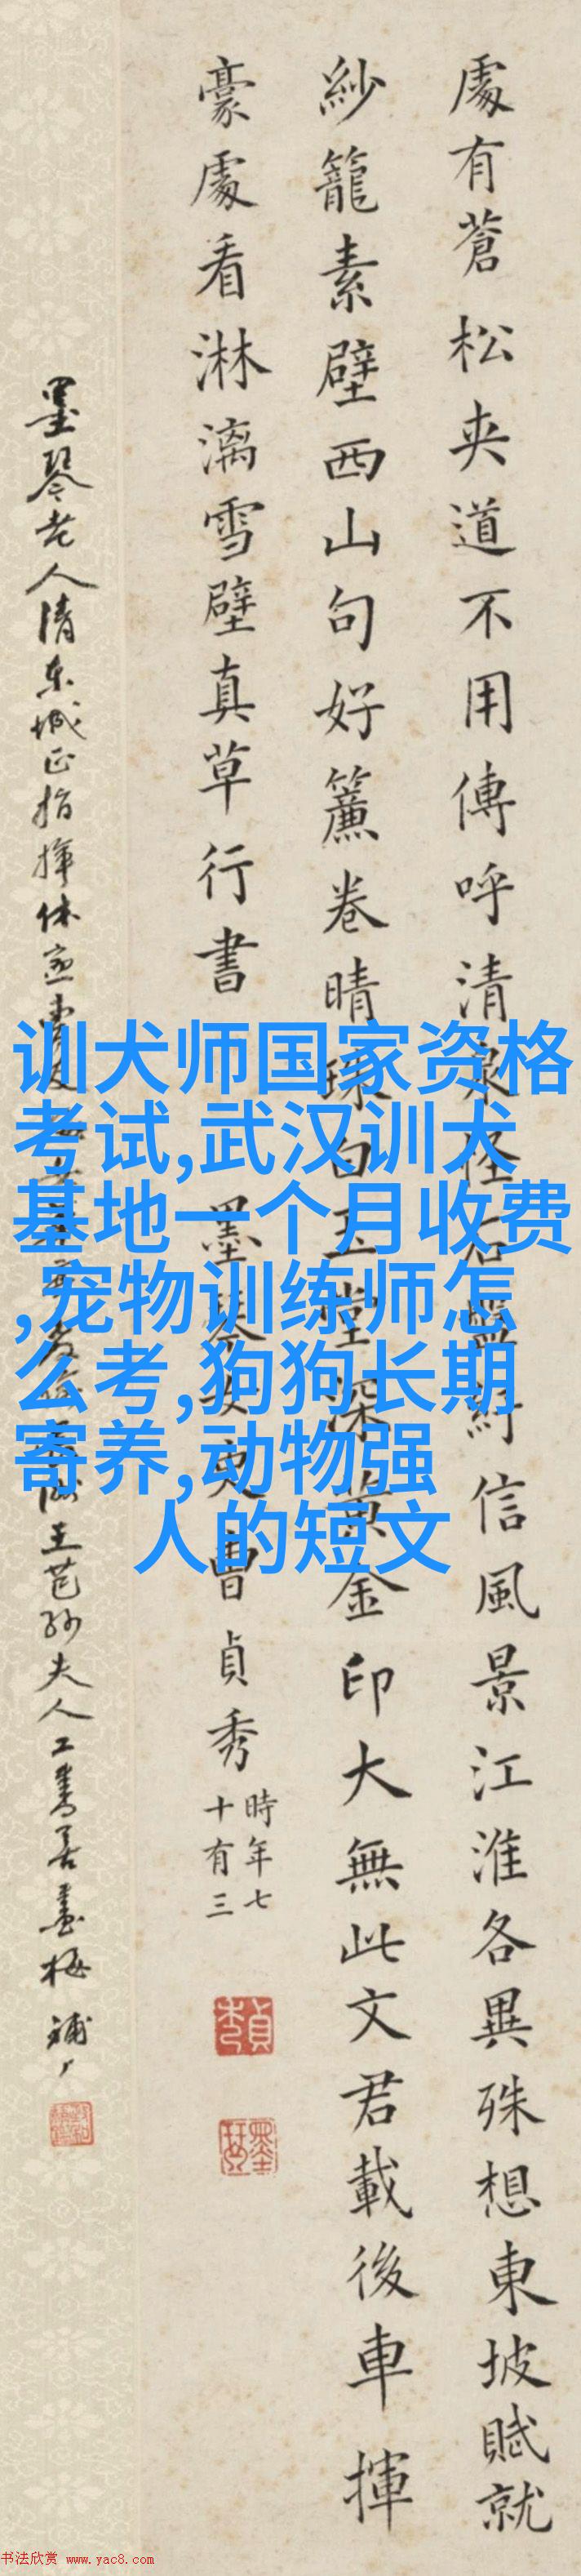 處有蒼松夾道不用傳呼清泉怪石盤紆信風景江淮各異殊想東坡賦就
紗籠素壁西山句好簾卷晴珠白玉堂深黃金印大無此文君載後車揮
豪處看淋漓雪壁真草行書
墨琴女史曹貞秀
時年七
十有三
墨琴老人清東城正指揮
王芑孫夫人工書善畫梅
训犬师国家资格
考试,武汉训犬
基地一个月收费
,宠物训练师怎
么考,狗狗长期
寄养,动物强
人的短文
书法欣赏 www.yac8.com